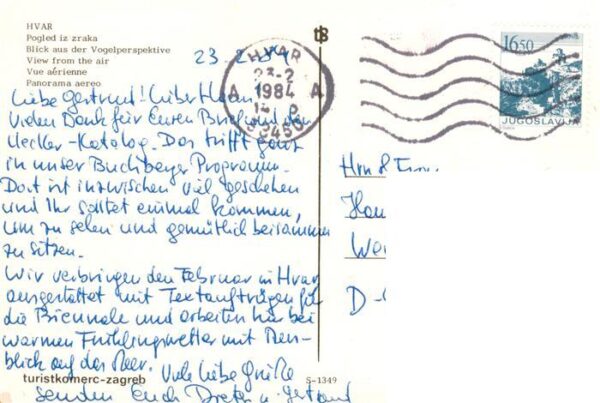 HVAR
Pogled iz zraka
Blick aus der Vogelperspektive
View from the air
Vue aérienne
Panorama aereo
23-2-84
HVAR
23-2
A 1984 A
58450
1650
JUGOSLAVIJA
Liebe Gertrud! Lieber
Vielen Dank für Euren Brief und den
Uecker-Katalog. Das trifft ganz
in unser Buchberger Programm.
Dort ist inzwischen viel geschehen
und Ihr solltet einmal kommen,
um zu sehen und gemütlich beisammen
zu sitzen.
Wir verbringen den Februar in Hvar
ausgestattet mit Textaufträgen für
die Biennale und arbeiten hier bei
warmen Frühlingswetter mit
blick auf das Meer. Viele liebe Grüße
senden Euch
turistkomerc-zagreb
S-1349
D-